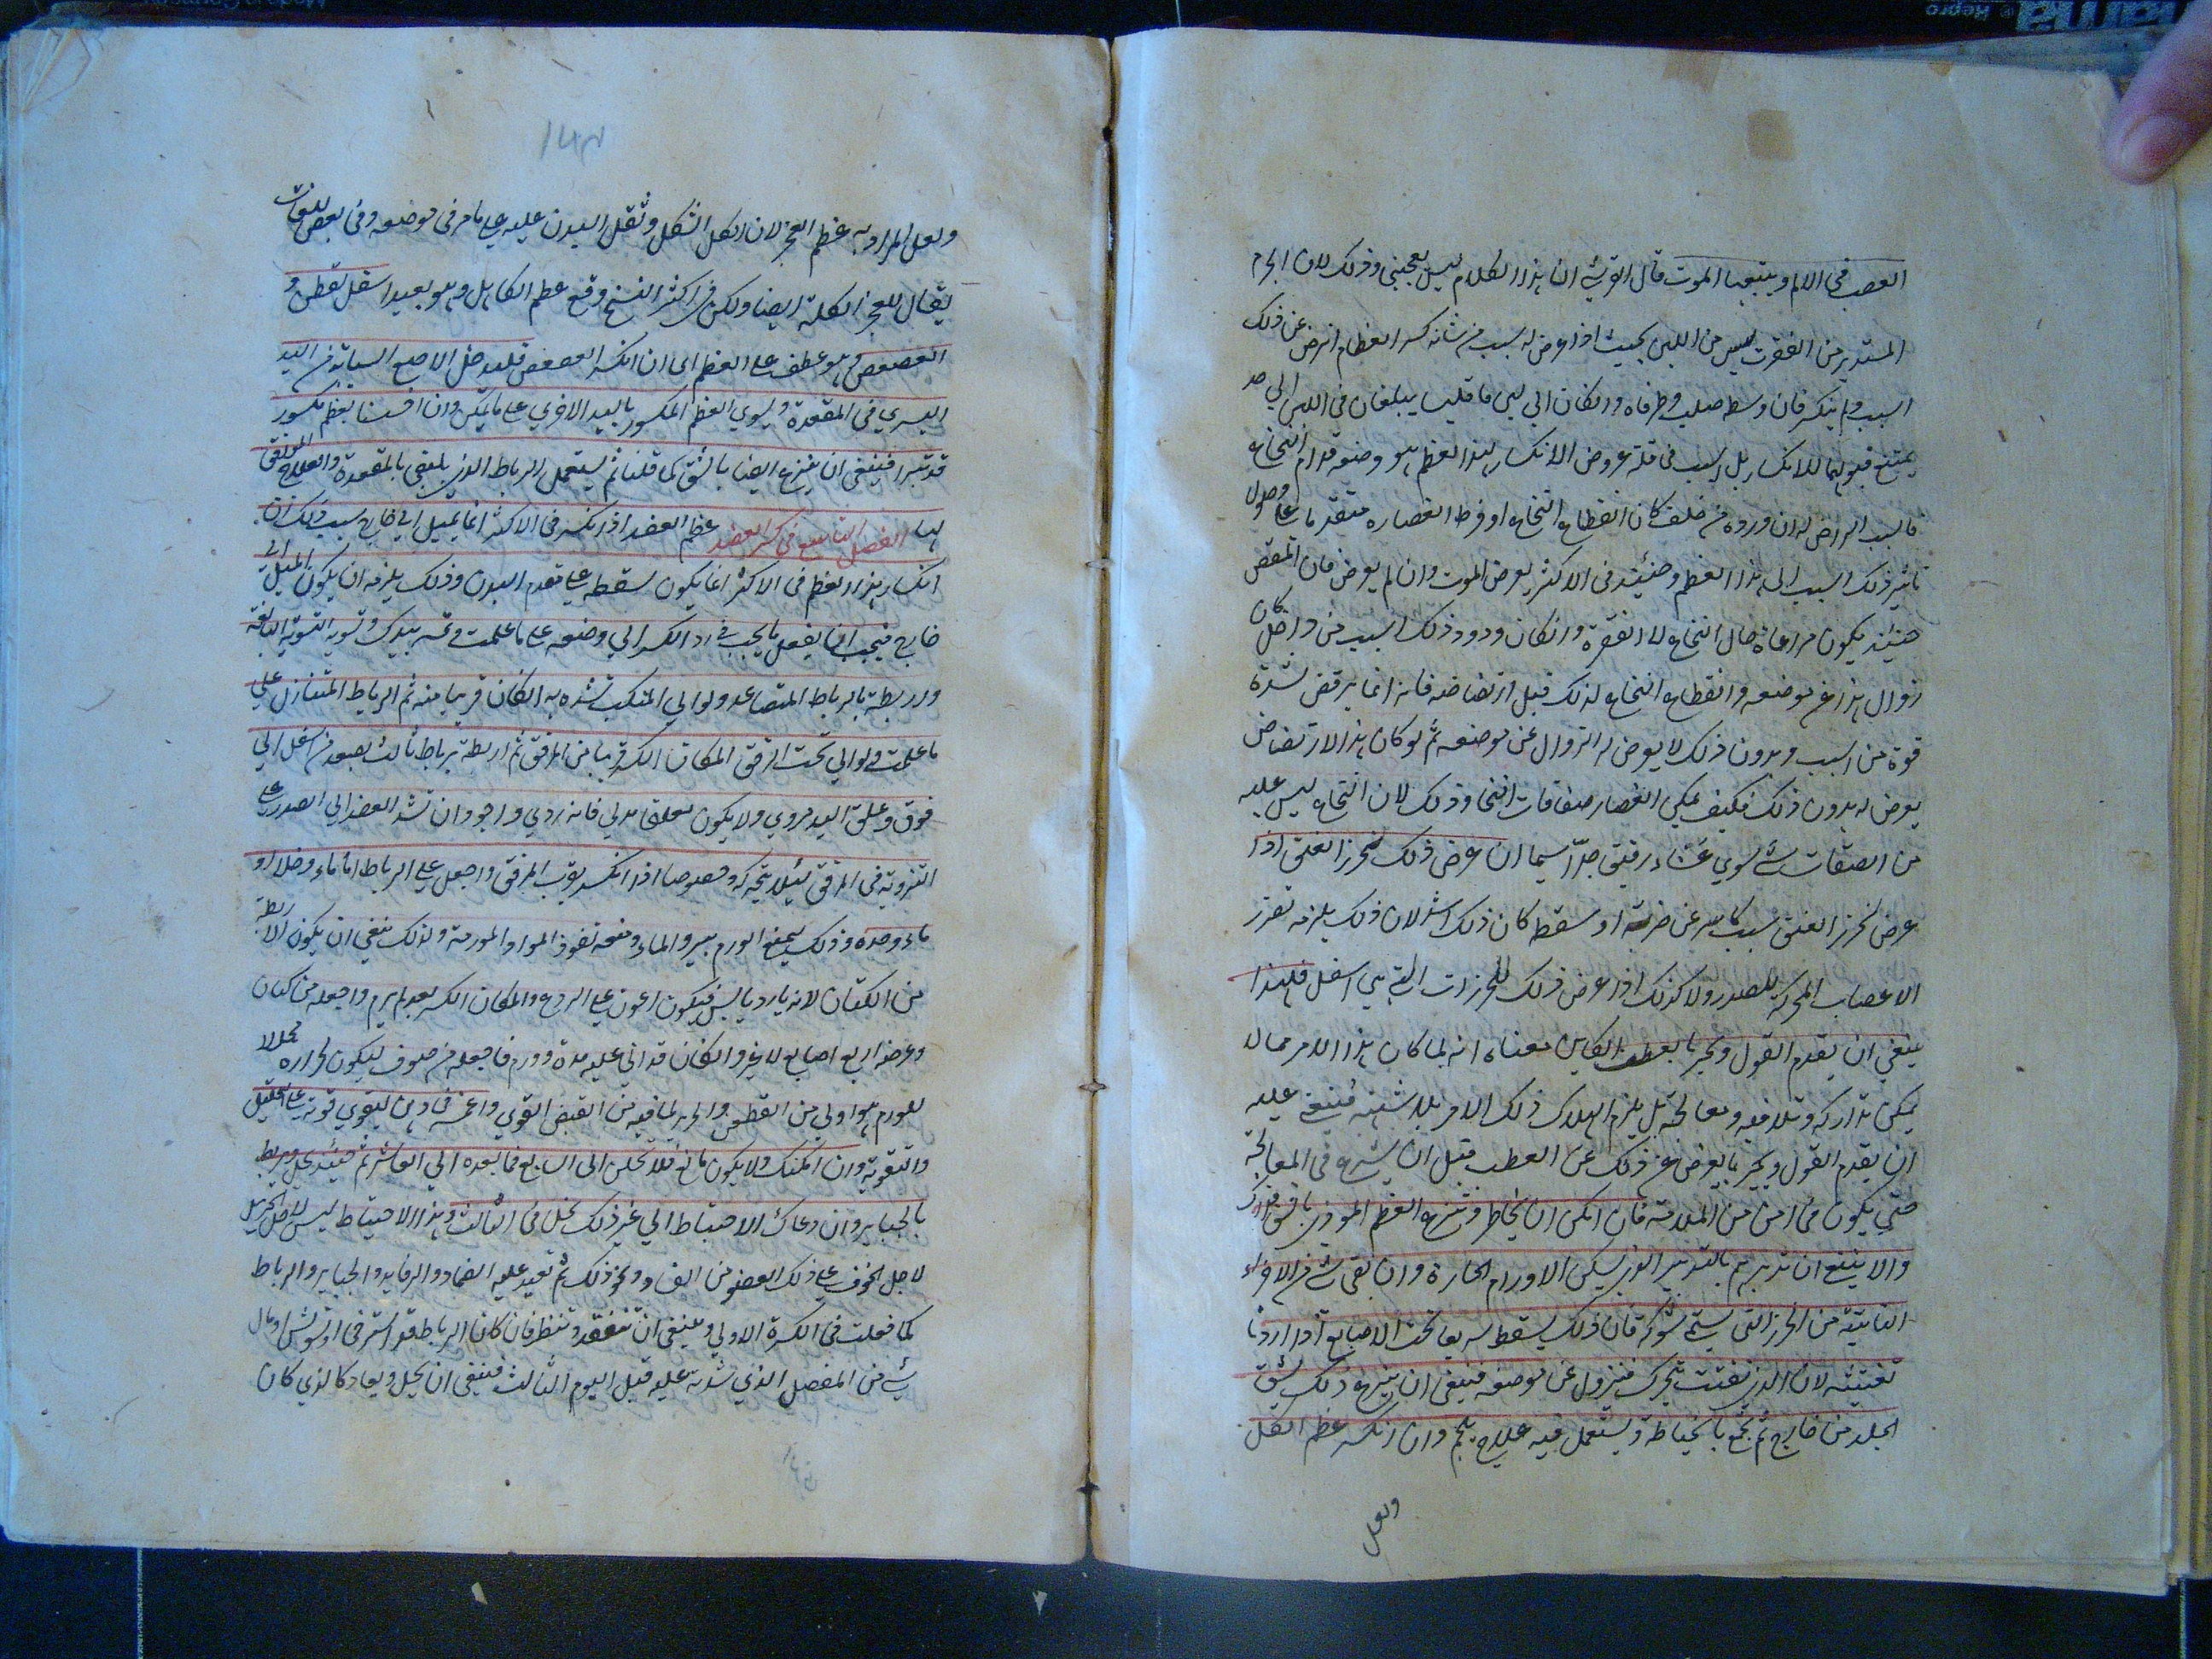 العصب فى الالم ويتبعها الموت قال القرشي ان هذا الكلام ليس يعجبنى وذلك لان الجرم
المستدير من الفقرت ليس من اللين بحيث اذا عرض له سبب من شانه كسر العظام انرض عن ذلك
السبب ولم ينكسر فان وسطه صلب وطرفاه وانكانا الى لين ما فليسا يبلغان فى اللين الي حد
يمتنع قبولهما للانكسار بل السبب فى قلة عروض الانكسار لهذا العظم هو وضعه قدام النخاع
فالسبب الراض له ان وروده من خلف كان انقطاع النخاع او فرط انعصاره متقدما على وصول
تاثير ذلك السبب الى هذا العظم وحينئذ فى الاكثر يعرض الموت وان لم يعرض فان المقصود
حينئذ يكون مراعاة حال النخاع لا الفقرة وانكان ورود ذلك السبب من داخل كان
زوال هذا عن موضعه وانقطاع النخاع لذلك قبل ارتضاضه فانه انما يرتض لشدة
قوة من السبب وبدون ذلك لا يعرض له الزوال عن موضعه ثم لو كان هذا الارتضاض
يعرض له بدون ذلك فكيف يمكن انعصار صفاقات النخاع وذلك لان النخاع ليس عليه
من الصفاقات شئ سوي غشاء رقيق جدّا سيما ان عرض ذلك لخرز العنق اذا
عرض لخرز العنق سبب كاسر عن ضربة او سقطة كان ذلك اشد لان ذلك يلزمه تضرر
الاعصاب المحركة للصدر ولا كذلك اذا عرض ذلك للخرزات التى هي اسفل فلهذا
ينبغي ان يقدم القول ويخبر بالعطب الكاين معناه انه لما كان هذا الامر مما لا
يمكن تداركه وتلافيه ومعالجته بل يلزم الهلاك ذلك الامر بلا شبهة فينبغى عليه
ان يقدم القول ويخبر بما يعرض عن ذلك عن العطب قبل ان يشرع فى المعالجة
حتي يكون فى امن من الملامة فان امكن ان يخاطر وتنزع العظم الموذي بالشق فذلك
والا ينبغى ان تدبرهم بالتدبير الذي يسكن الاورام الحارة وان بقى شئ من الاجزاء
الناتئة من الخرز التى يسمى شوكة فان ذلك يسقط سريعا تحت الاصابع اذا اردنا
تفتيشه لان الذى تفتت يتحرك فيزول عن موضعه فينبغى ان ينزع ذلك بشق
الجلد من خارج ثم يجمع بالخياطة ويستعمل فيه علاج يلحم وان انكسر عظم الكل
ولعل
ولعل المراد به عظم العجز لان الكل الثكل وثقل البدن عليه على ما مر فى موضعه وفى بعض اللغات
يقال للعجز الكلة ايضا ولكن فى اكثر النسخ وقع عظم الكاهل وهو بعيد اسفل القطن و
العصعص وهو عطف على العظم اى ان انكسر العصعص فليدخل الاصبع السبابة من اليد
اليسري فى المقعدة ويسوي العظم المكسور باليد الاخري على ما يمكن وان احسسنا بعظم مكسور
قد تبرا فينبغى ان ينزع ايضا بالشق كما قلنا ثم يستعمل الرباط الذى يليق بالمقعدة والعلاج الموافق
لها الفصل التاسع فى كسر العضد عظم العضد اذا انكسر فى الاكثر انما يميل الى خارج سبب ذلك ان
انكسار هذا العظم فى الاكثر انما يكون لسقطة على مقدم البدن وذلك يلزمه ان يكون الميل الى
خارج فيجب ان يفعل ما يجب فى رد الكسر الي وضعه على ما علمت وتمسه بيدك وتسويه التسوية البالغة
واربطه بالرباط المتصاعد ولو الي المنكب تشده به انكان قريبا منه ثم الرباط المتنازل على
ما علمت ولو الي تحت المرفق انكان الكسر قريبا من المرفق ثم اربطه برباط ثالث يصعد من اسفل الى
فوق وعلق اليد مروي ولا يكون معلقا مدلي فانه ردي واجود ان تشد العضد الي الصدر على
التزوية فى المرفق لئلا يتحرك وخصوصا اذا انكسر بقرب المرفق واجعل على الرباط اما ماء وخلا او
ماء وحده وذلك ليمنع الورم ببرد الماء ومنعه نفوذ المواد المورمة ولذلك ينبغى ان يكون الا ربطة
من الكتان لانه بارد يابس فيكون اعون على الردع وانكان الكسر بعد لم يرم واجعله من كتان
وعرضه اربع اصابع لا غير وانكان قد اتى عليه مدة وورم فاجعله من صوف ليكون لحرارته محللا
للورم هو اولي من القطن والحرير لما فيه من القبض القوي واغمسه فى دهن ليقوي قوته على التحليل
والتقوية وان امكنك ولا يكون مانع فلا تحلن الى السابع فما بعده الي العاشر ثم حينئذ يحل ويربط
بالجباير وان دعاك الاحتياط الي غير ذلك فحل فى الثالث وهذا الاحتياط ليس لاجل التحليل
لاجل الخوف على ذلك العضو من الفساد ونحو ذلك ثم تعيد عليه الضماد والرفايد والجباير والرباط
كما فعلت فى الكرة الاولي وينبغى ان تتفقد وتنظر فان كان الرباط قد استرخى او تشوش او مال
شئ من المفصل الذي شددته عليه قبل اليوم الثالث فينبغى ان يحل ويعاد كالذي كان